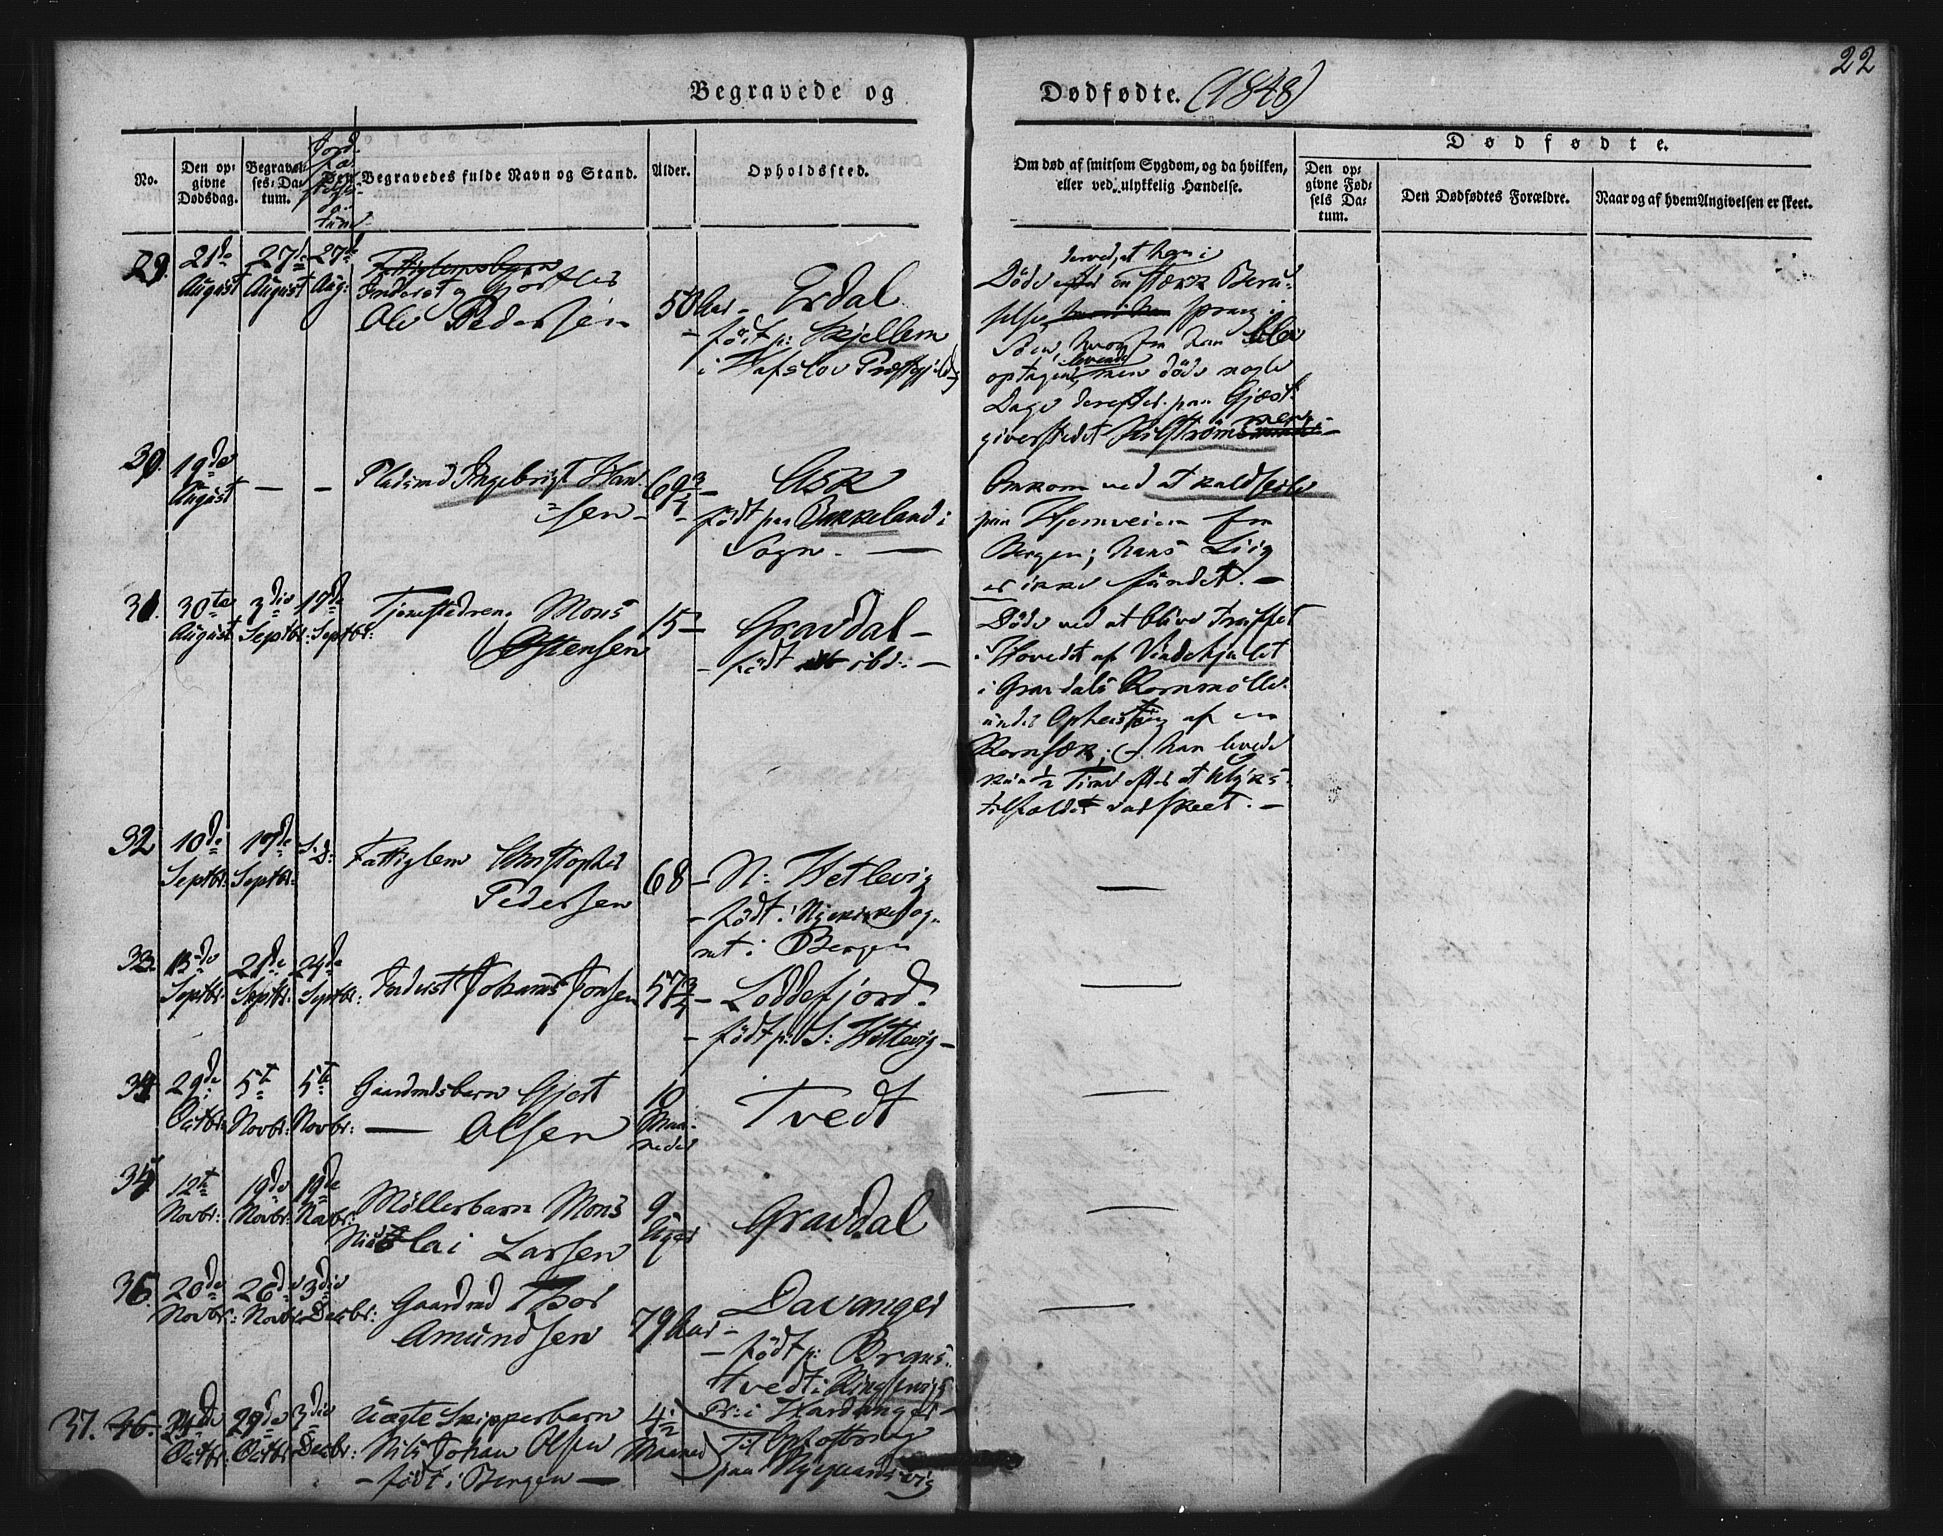 22
Begravede og Dødfødte. (1848)
No.
Den op-
givne
Dødsdag.
Begravel-
ses-Da-
tum.
Begravedes fulde Navn og Stand.
Alder.
Opholdssted.
Om død af smitsom Sygdom, og da hvilken,
eller ved ulykkelig Hændelse.
Dødfødte.
Den op-
givne Fød-
sels Da-
tum.
Den Dødfødtes Forældre.
Naar og af hvem Angivelsen er skeet.
29. 21de August 27de August 27de Aug:
Inderst og Gjørtler
Ole Pedersen
50 Aar - Erdal
- født p: Skjellem
i Hafslov Præstegjeld
derved, at han i
Døde en stærk Beru-
selse sprang i
Søen, hvorfra han blev
optagen levende, men døde nogle
Dage derefter paa Gjæst-
giverstedet
30. 19de August — —
Pladsmd Ingebrigt Han-
sen -
69 3/4 - Ask
født paa Bakkeland i
Sogn. —
Omkom ved at kaldseile
paa Hjemveien fra
Bergen; hans Liig
er ikke fundet. —
31. 30te August 3die Septbr: 17de Septbr:
Tjenestedreng Mons
Østensen
15 - Gravdal -
- født ibd: -
Døde ved at blive truffet
i Hovedet af Vindehjulet
i Gravdals Kornmølle
under Opheisning af en
Kornsæk; - han levede
kun 1/2 Time efter at Ulyks-
tilfældet var skeet. -
32 10de Septbr: 17de Septbr: S: D:
Fattiglem Christopher
Pedersen
68 - N: Hetlevig
- født i Nykirkesog-
net i Bergen
—
33. 13de Septbr: 21de Septbr: 24de Septbr:
Inderst Johannes Jonsen
57 3/4 - Loddefjord.
- født p: S: Hetlevig -
—
34 29de Octbr: 5te Novbr: 5te Novbr:
Gaardmdsbarn Gjert
— Olsen
10
Maa-
neder
Tvedt
—
35 12te Novbr: 19de Novbr: 19de Novbr:
Møllerbarn Mons
Nicolai Larsen
9
Uger
Gravdal
—
36. 20de Novbr: 26de Novbr: 3die Decbr:
Gaardmd Thor
Amundsen
79 Aar - Davanger
- født p:
Tvedt i
Pr: i Hardanger -
—
37. 36. Octbr: 29de Octbr: 3die Decbr:
Uægte Skipperbarn
Nils Johan Olsen
- født i Bergen —
4 1/2
Maaned
Til Opfostring
paa Nygaardsvig